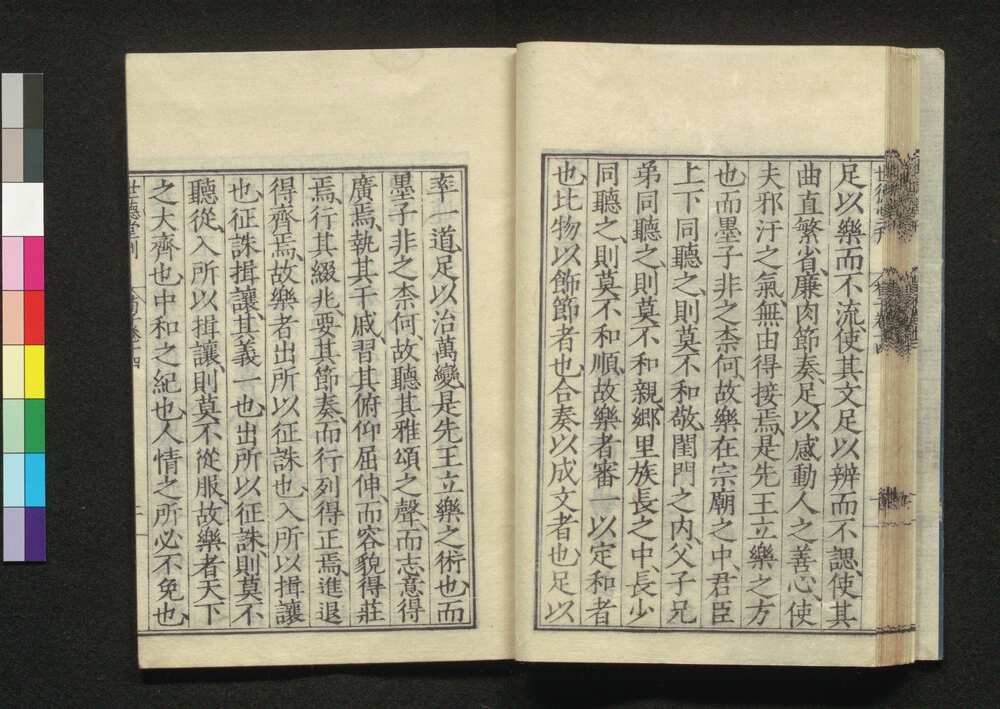 足以樂而不流使其文足以辨而不諰使其
曲直繁省廉肉節奏足以感動人之善心使
夫邪汙之氣無由得接焉是先王立樂之方
也而墨子非之柰何故樂在宗廟之中君臣
上下同聽之則莫不和敬閨門之內父子兄
弟同聽之則莫不和親鄉里族長之中長少
同聽之則莫不和順故樂者審一以定和者
也比物以飾節者也合奏以成文者也足以
率一道足以治萬變是先王立樂之術也而
墨子非之柰何故聽其雅頌之聲而志意得
廣焉執其干戚習其俯仰屈伸而容貌得莊
焉行其綴兆要其節奏而行列得正焉進退
得齊焉故樂者出所以征誅也入所以揖讓
也征誅揖讓其義一也出所以征誅則莫不
聽從入所以揖讓則莫不從服故樂者天下
之大齊也中和之紀也人情之所必不免也
世德堂刊